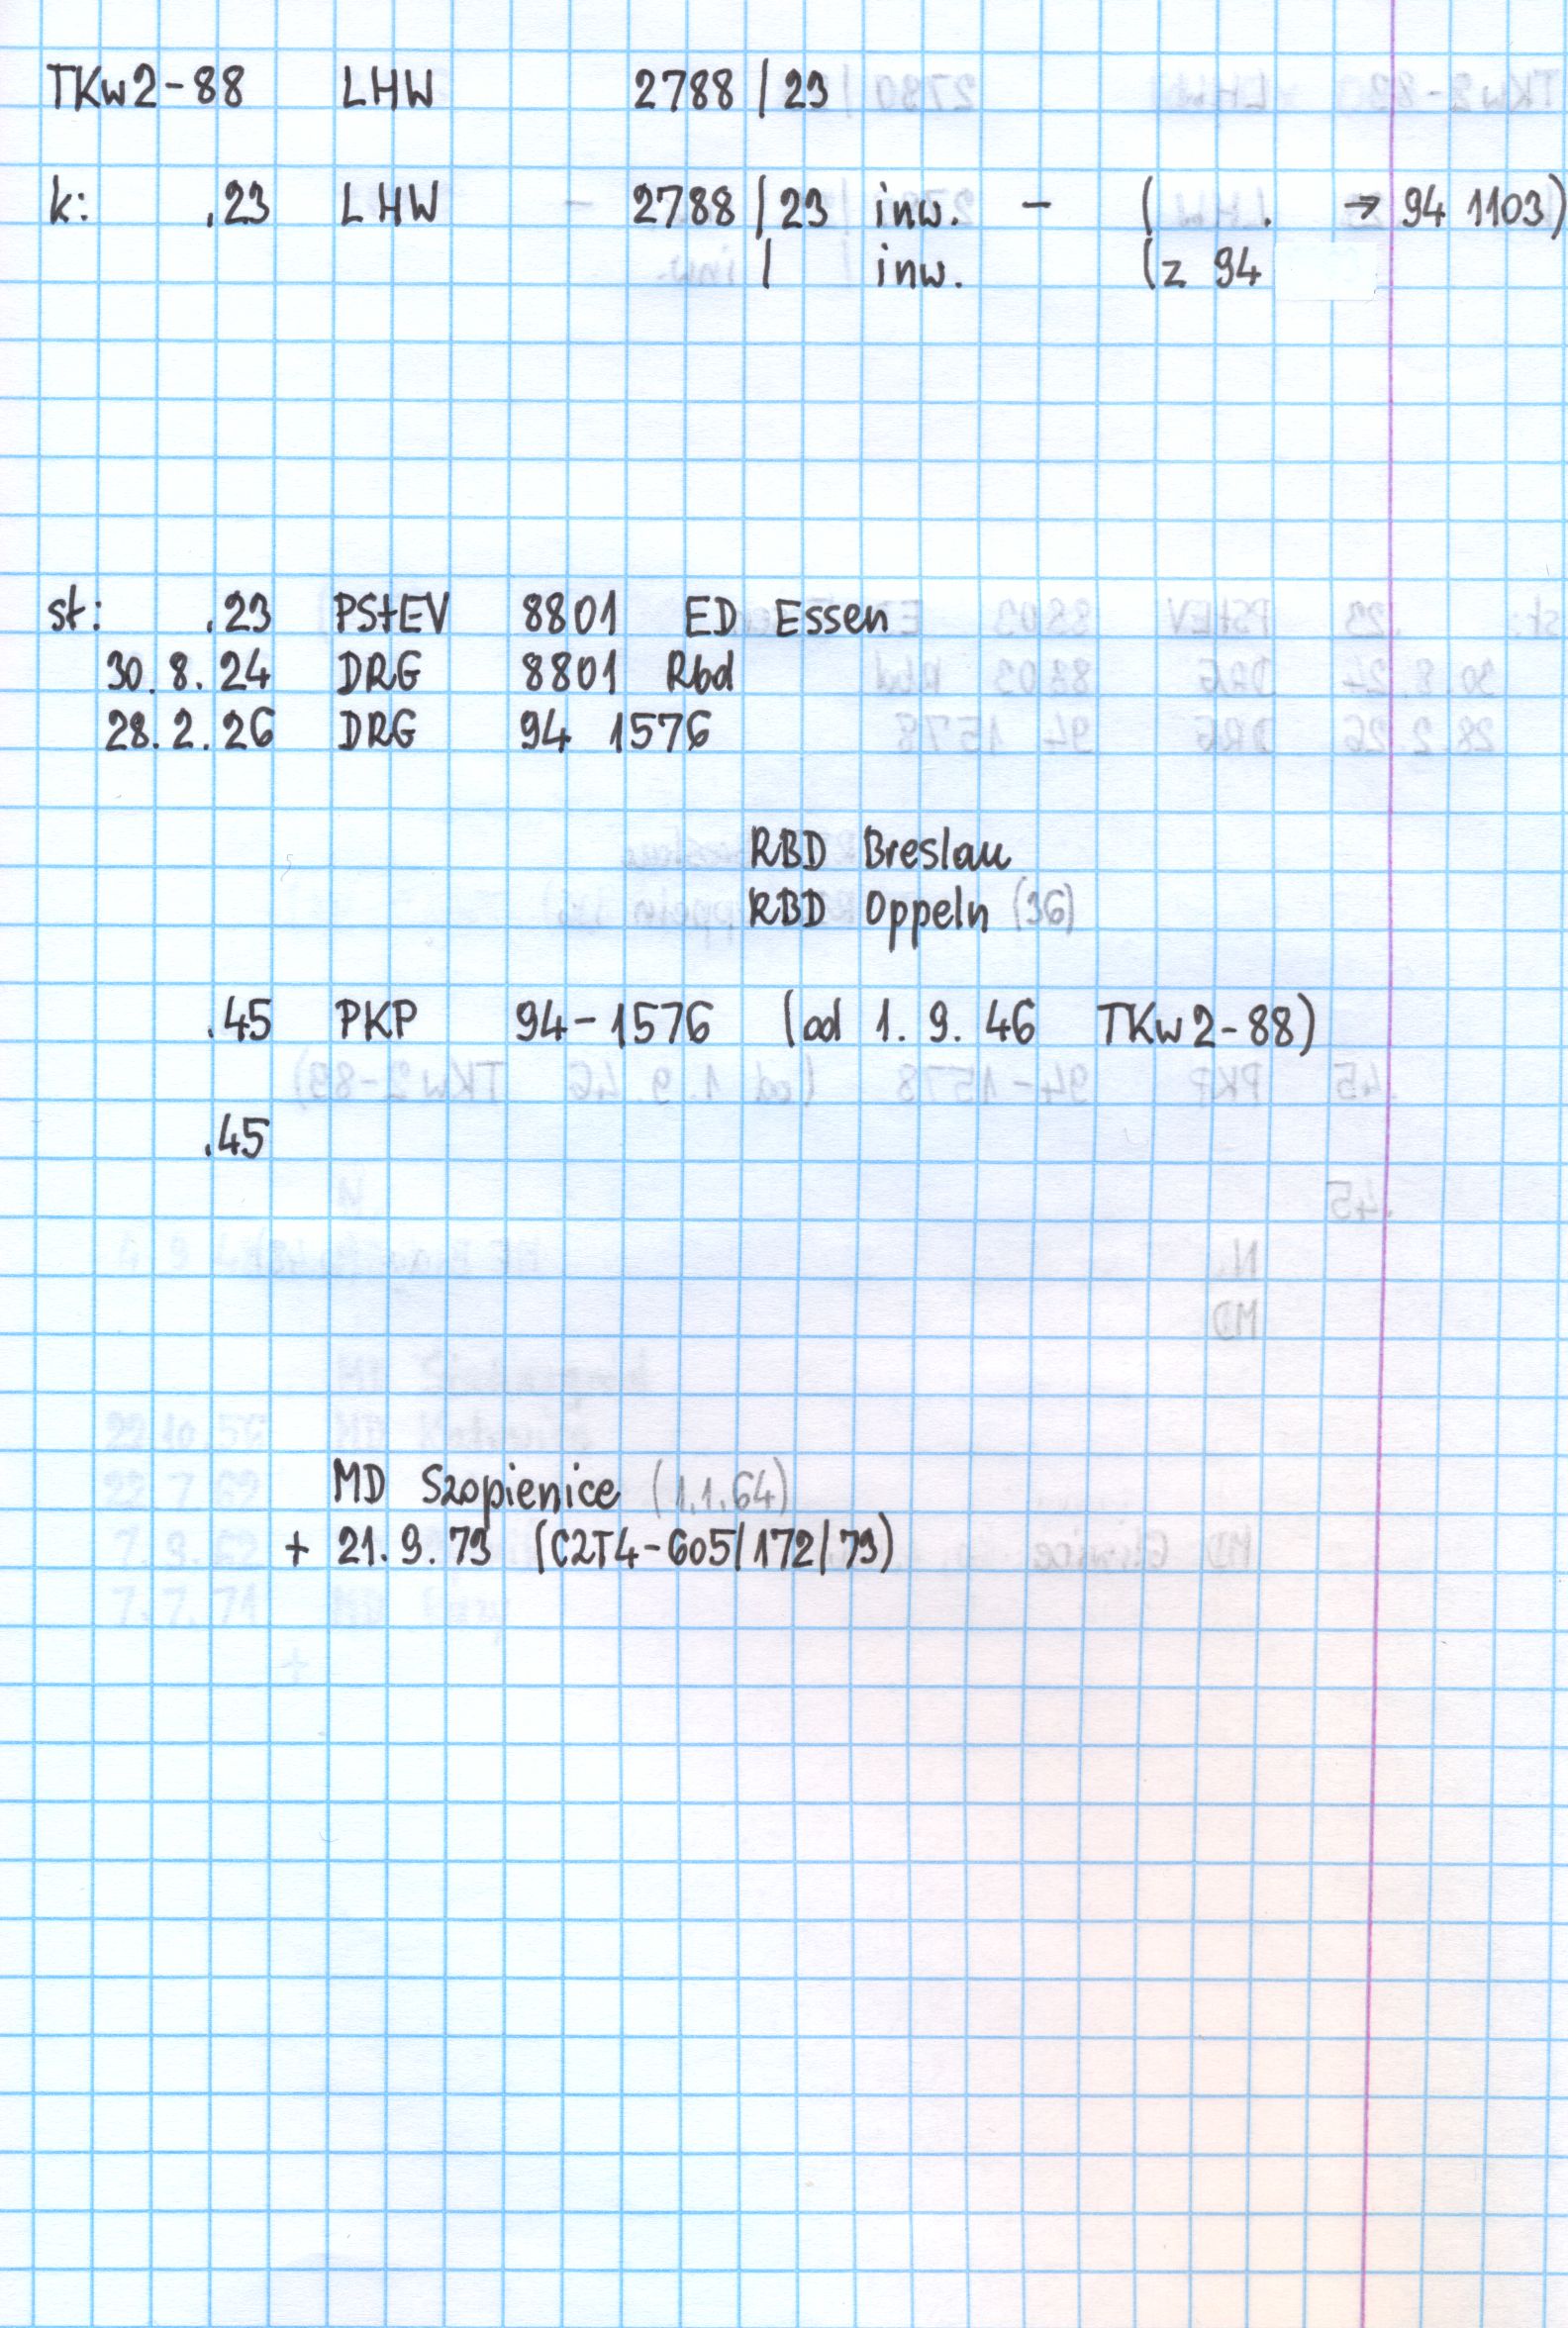 TKw2-88 LHW 2788 / 23
k: .23 LHW 2788 / 23 inw. - ( . → 94 1103)
/ inw. (z 94
st: .23 PStEV 8801 ED Essen
30. 8. 24 DRG 8801 Rbd
28. 2. 26 DRG 94 1576
RBD Breslau
RBD Oppeln (36)
.45 PKP 94-1576 (od 1. 9. 46 TKw2-88)
.45
MD Szopienice (1.1.64)
+ 21. 9. 73 (C2T4-605/172/73)